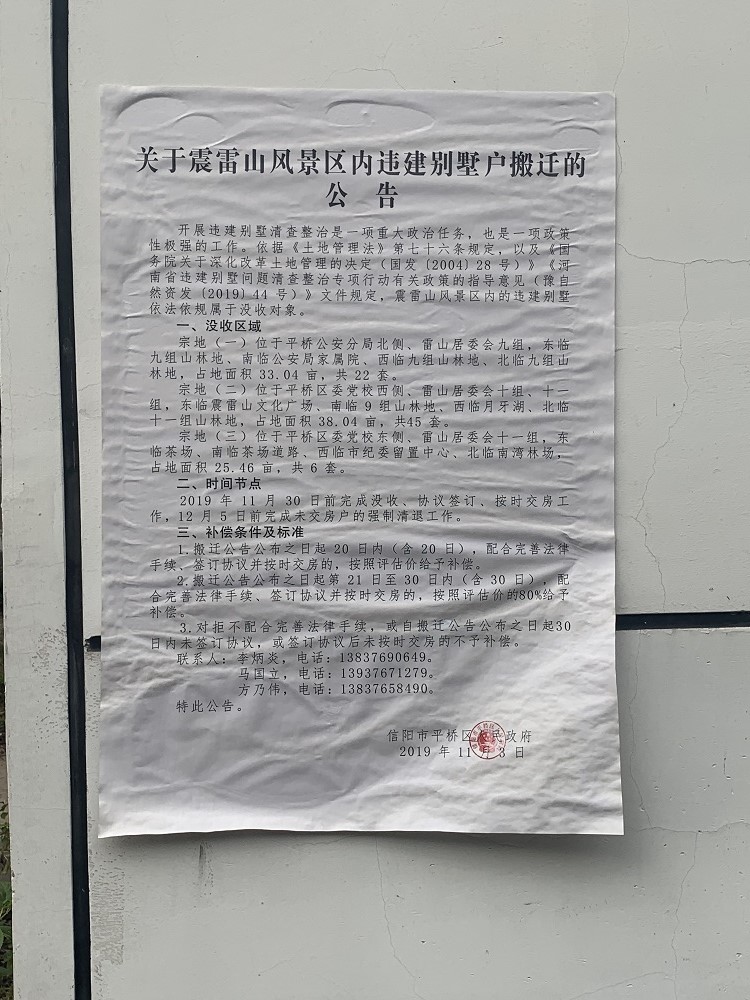 关于震雷山风景区内违建别墅户搬迁的
公 告
开展违建别墅清查整治是一项重大政治任务，也是一项政策
性极强的工作。依据《土地管理法》第七十六条规定，以及《国
务院关于深化改革土地管理的决定（国发〔2004〕28 号）》《河
南省违建别墅问题清查整治专项行动有关政策的指导意见（豫自
然资发〔2019〕44 号）》文件规定，震雷山风景区内的违建别墅
依法依规属于没收对象。
一、没收区域
宗地（一）位于平桥公安分局北侧、雷山居委会九组，东临
九组山林地、南临公安局家属院、西临九组山林地、北临九组山
林地，占地面积 33.04 亩，共 22 套。
宗地（二）位于平桥区委党校西侧、雷山居委会十组、十一
组，东临震雷山文化广场、南临 9 组山林地、西临月牙湖、北临
十一组山林地，占地面积 38.04 亩，共45 套。
宗地（三）位于平桥区委党校东侧、雷山居委会十一组，东
临茶场、南临茶场道路、西临市纪委留置中心、北临南湾林场，
占地面积 25.46 亩，共 6 套。
二、时间节点
2019 年 11 月 30 日前完成没收、协议签订、按时交房工
作，12 月 5 日前完成未交房户的强制清退工作。
三、补偿条件及标准
1.搬迁公告公布之日起 20 日内（含 20 日），配合完善法律
手续、签订协议并按时交房的，按照评估价给予补偿。
2.搬迁公告公布之日起第 21 日至 30 日内（含 30 日），配
合完善法律手续、签订协议并按时交房的，按照评估价的80%给予
补偿。
3.对拒不配合完善法律手续，或自搬迁公告公布之日起30
日内未签订协议，或签订协议后未按时交房的不予补偿。
联系人：李炳炎，电话：13837690649。
马国立，电话：13937671279。
方乃伟，电话：13837658490。
特此公告。
信阳市平桥区人民政府
2019 年 11 月 3 日